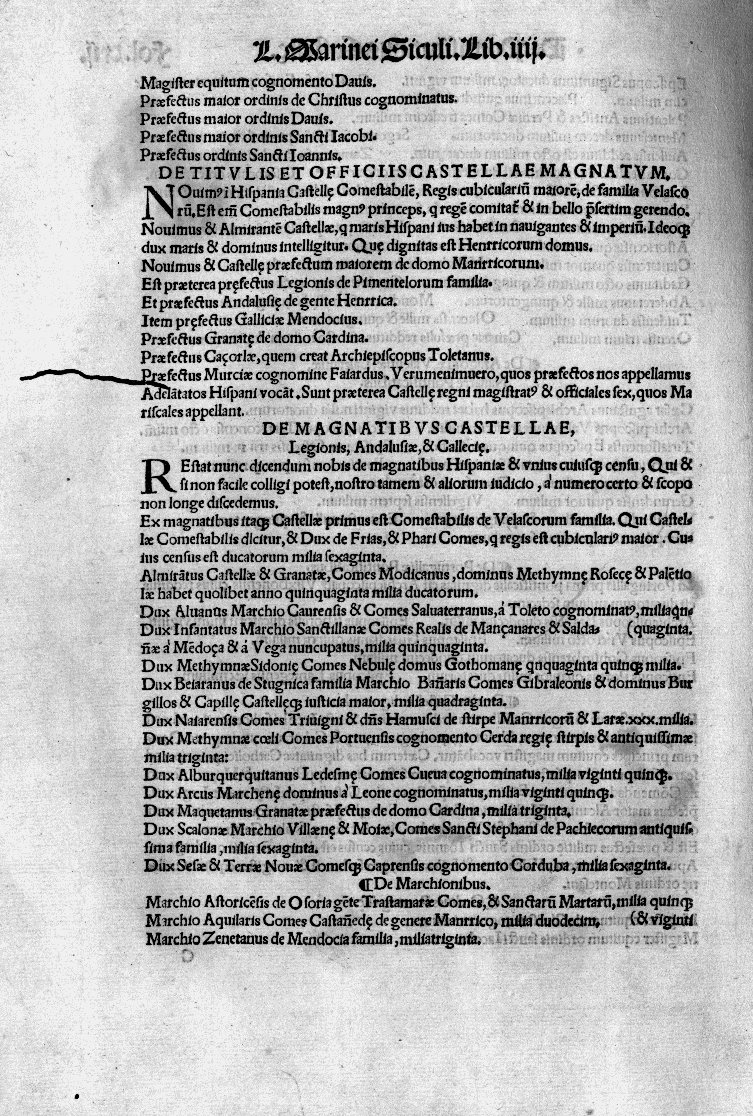 L. Marinei Siculi. Lib. iiij.
Magister equitum cognomento Dauis.
Præfectus maior ordinis de Christus cognominatus.
Præfectus maior ordinis Dauis.
Præfectus maior ordinis Sancti Iacobi.
Præfectus ordinis Sancti Ioannis.
DE TITVLIS ET OFFICIIS CASTELLAE MAGNATVM.
NOuimꝰ ī Hispania Castellę Comestabilē, Regis cubiculariū maiorē, de familia Velasco
rū. Est em̄ Comestabilis magnꝰ princeps, q regē comitat̄ & in bello p̄sertim gerendo.
Nouimus & Almirantē Castellæ, q maris Hispani ius habet in nauigantes & imperiū. Ideoq̨
dux maris & dominus intelligitur. Quę dignitas est Henrricorum domus.
Nouimus & Castellę præfectum maiorem de domo Manrricorum.
Est præterea pręfectus Legionis de Pimentelorum familia.
Et præfectus Andalusię de gente Henrrica.
Item pręfectus Galliciæ Mendocius.
Præfectus Granatę de domo Cardina.
Præfectus Caçorlæ, quem creat Archiepiscopus Toletanus.
Præfectus Murciæ cognomine Faiardus. Verumenimuero, quos præfectos nos appellamus
Adelātatos Hispani vocāt. Sunt præterea Castellę regni magistratꝰ & officiales sex, quos Ma
riscales appellant.
DE MAGNATIBVS CASTELLAE,
Legionis, Andalusiæ, & Gallecię.
REstat nunc dicendum nobis de magnatibus Hispaniæ & vnius cuiusq̨ censu, Qui &
si non facile colligi potest, nostro tamen & aliorum iudicio, a numero certo & scopo
non longe discedemus.
Ex magnatibus itaq̨ Castellæ primus est Comestabilis de Velascorum familia. Qui Castel-
læ Comestabilis dicitur, & Dux de Frias, & Phari Comes, q regis est cubiculariꝰ maior. Cu-
ius census est ducatorum milia sexaginta.
Almirātus Castellæ & Granatæ, Comes Modicanus, dominus Methymnę Rosecę & Palētio
læ habet quolibet anno quinquaginta milia ducatorum.
Dux Aluanus Marchio Caurensis & Comes Saluaterranus, á Toleto cognominatꝰ, milia qn̄-
Dux Infantatus Marchio Sanctillanæ Comes Realis de Mançanares & Salda- (quaginta.
ñæ á Mēdoça & á Vega nuncupatus, milia quinquaginta.
Dux Methymnæ Sidonię Comes Nebulę domus Gothomanę qnquaginta quinq̨ milia.
Dux Beiaranus de Stugnica familia Marchio Bañaris Comes Gibraleonis & dominus Bur
gillos & Capillę Castellęq̨ iusticia maior, milia quadraginta.
Dux Naiarensis Comes Triuigni & dn̄s Hamusci de stirpe Manrricorū & Laræ. xxx. milia.
Dux Methymnæ cœli Comes Portuensis cognomento Cerda regię stirpis & antiquissimæ
milia triginta:
Dux Alburquerquitanus Ledesmę Comes Cueua cognominatus, milia viginti quinq̨.
Dux Arcus Marchenę dominus á Leone cognominatus, milia viginti quinq̨.
Dux Maquetanus Granatæ præfectus de domo Cardina, milia triginta.
Dux Scalonæ Marchio Villænę & Moiæ, Comes Sancti Stephani de Pachiecorum antiquis-
sima familia, milia sexaginta.
Dux Sesæ & Terræ Nouæ Comesq̨ Caprensis cognomento Corduba, milia sexaginta.
¶De Marchionibus.
Marchio Astoricēsis de Osoria gēte Trastamaræ Comes, & Sanctarū Martarū, milia quinq̨
Marchio Aquilaris Comes Castañedę de genere Manrrico, milia duodecim. (& viginti
Marchio Zenetanus de Mendocia familia, milia triginta.